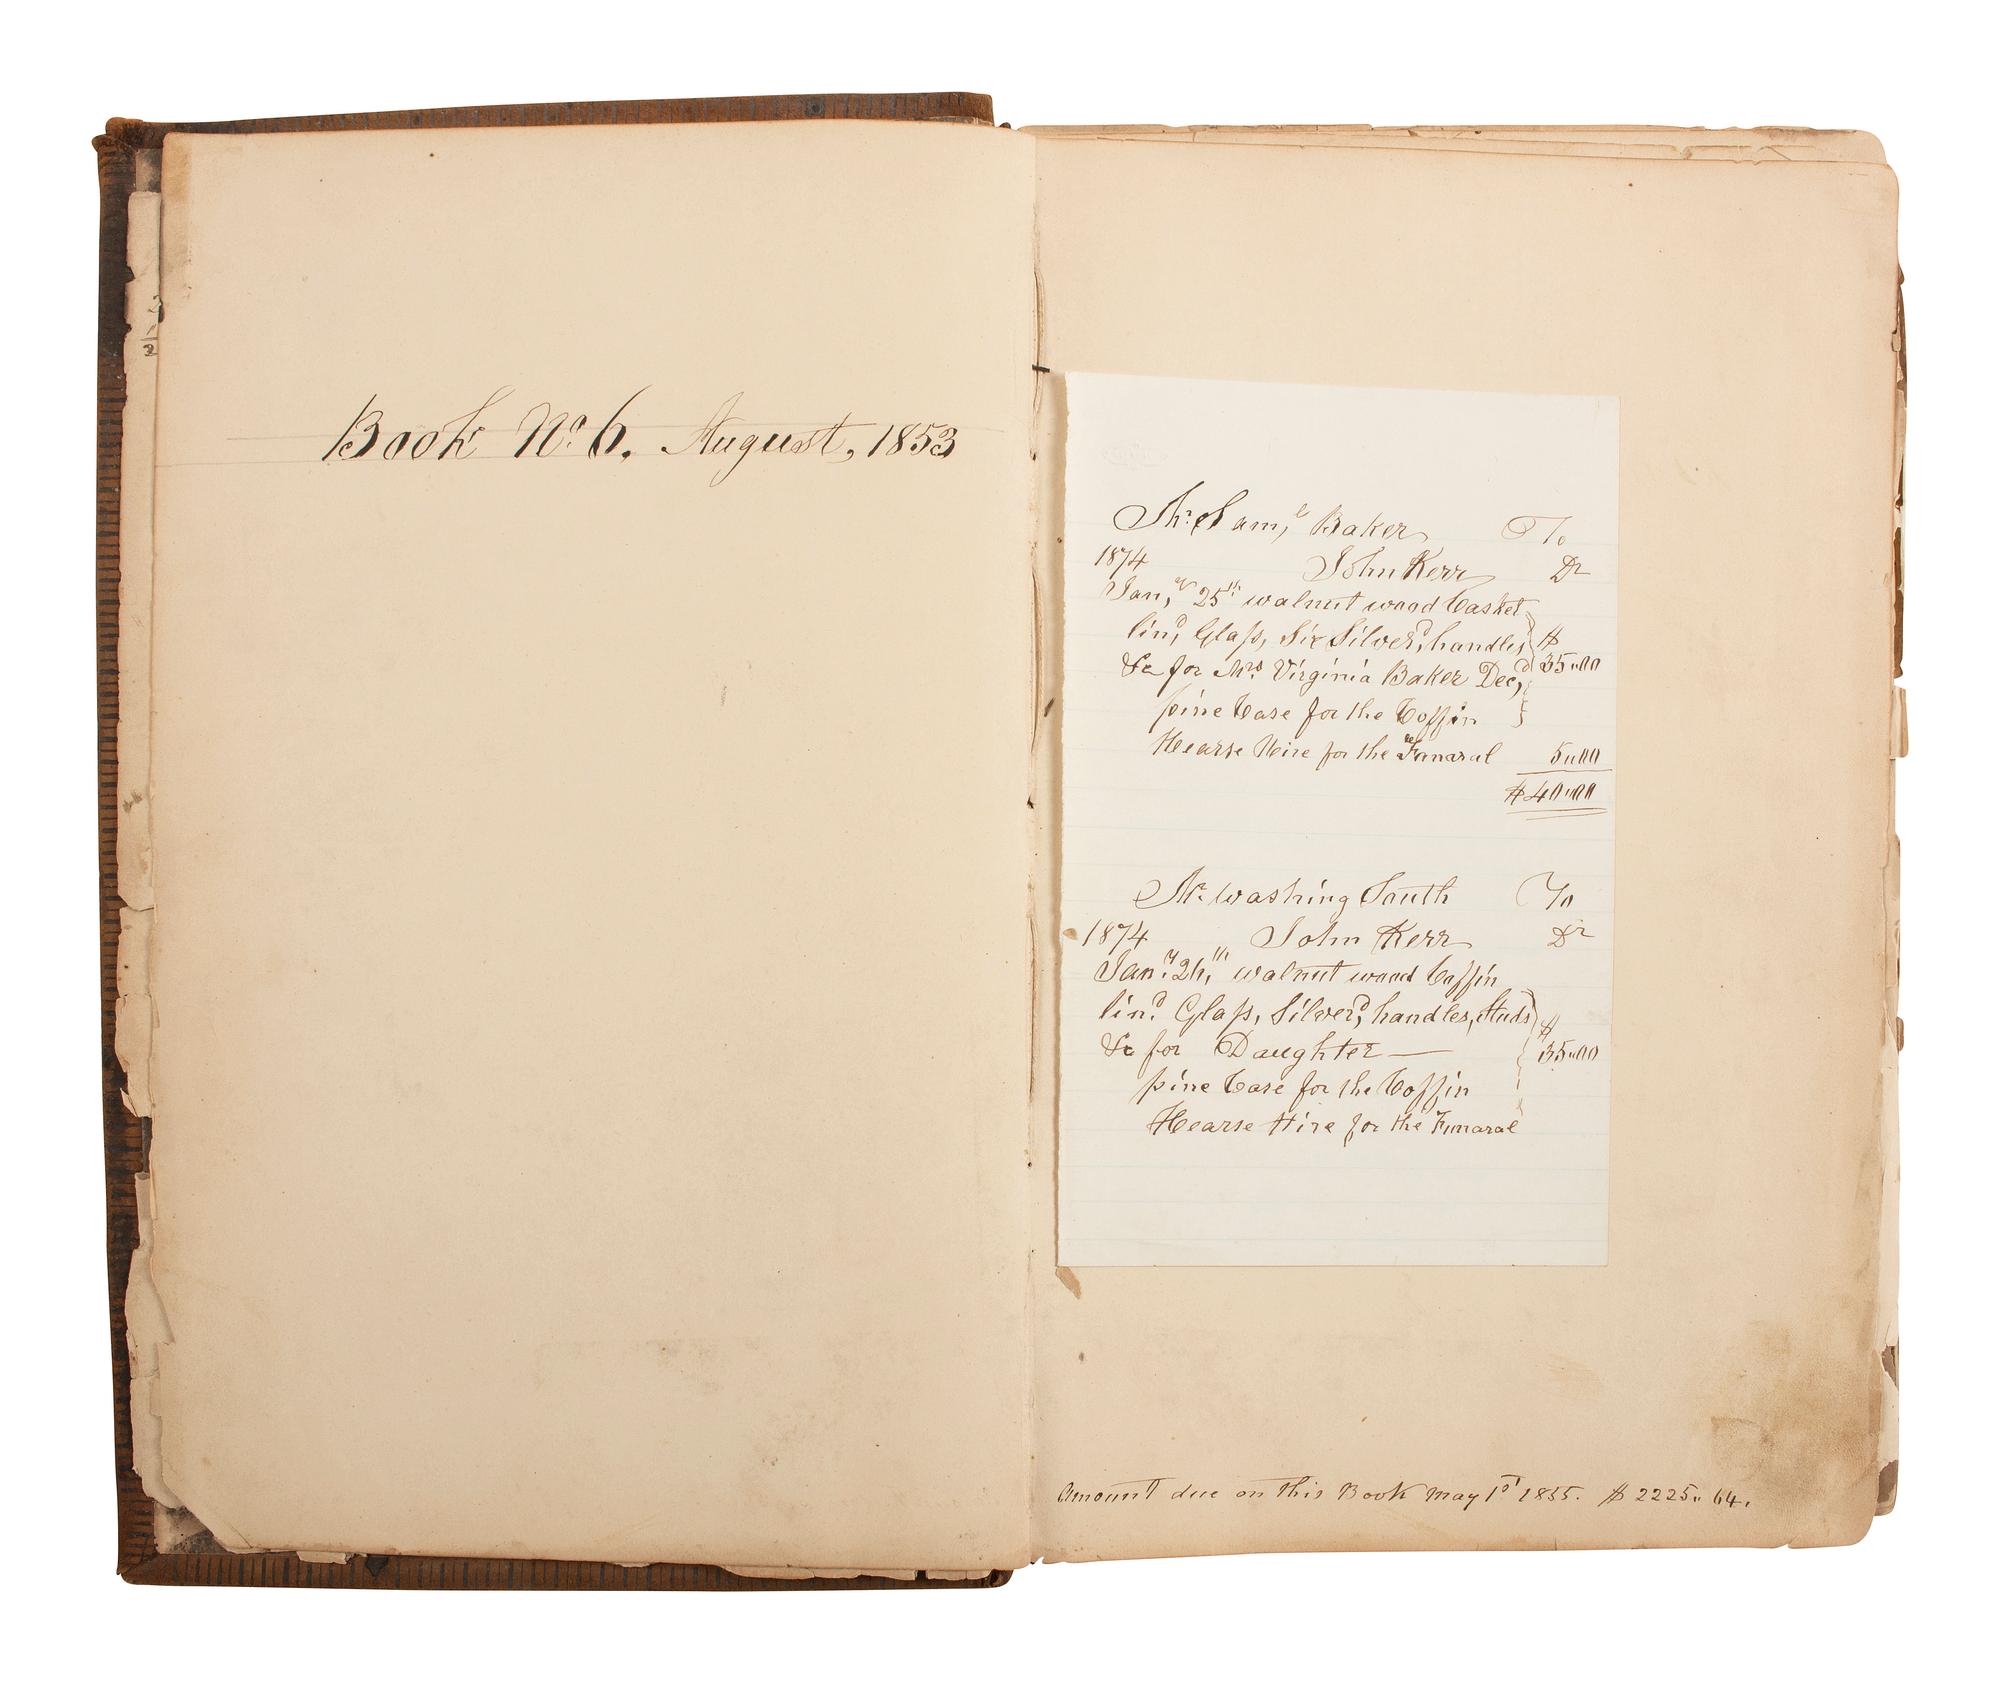 Book No 6. August, 1853
Mr. Sam,l Baker To
1874 John Kerr Dr
Jan,y 25th walnut wood Casket
lin,d Glass, Six Silver,d handles $
&c for Mrs Virginia Baker Dec,d 35.00
pine Case for the Coffin
Hearse Hire for the Funaral 5.00
$40.00
Mr. Washing South To
1874 John Kerr Dr
Jan.y 26,th walnut wood Coffin
lin.d Glass, Silver,d handles, Studs $
&c for Daughter — 35.00
pine Case for the Coffin
Hearse Hire for the Funaral
Amount due on this Book May 1st 1855. $ 2225.. 64.